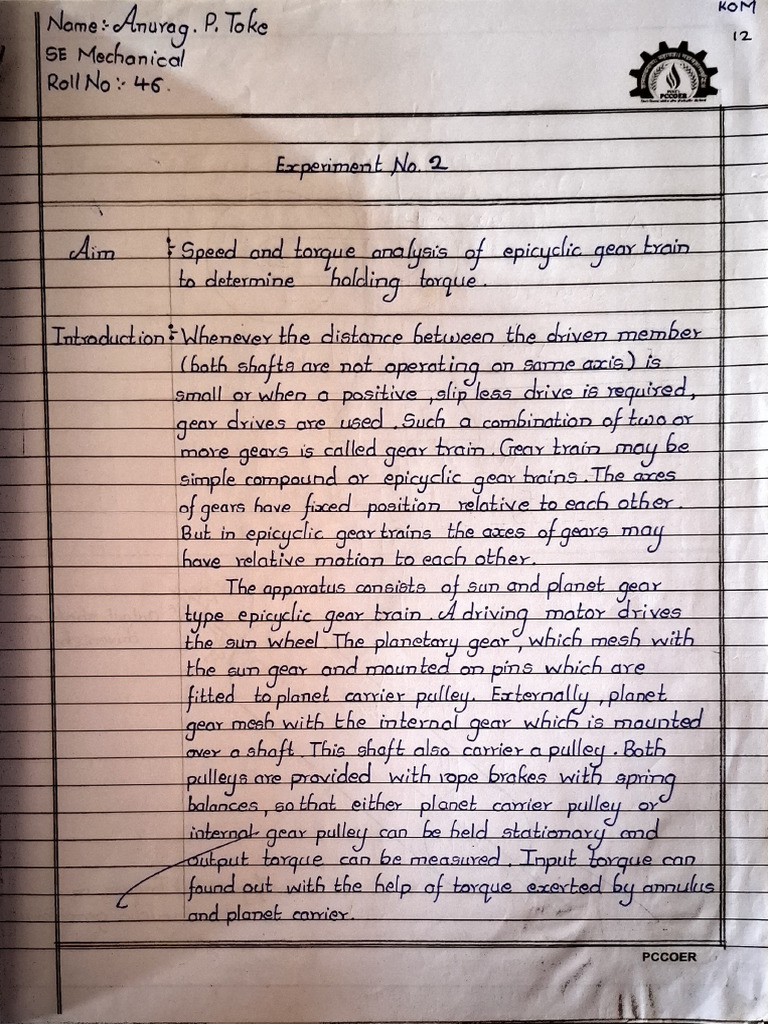 KOM
Name:- Anurag. P. Toke
12
SE Mechanical
Roll No :- 46.
PCCOER
Experiment No. 2
Aim :- Speed and torque analysis of epicyclic gear train
to determine holding torque.
Introduction:- Whenever the distance between the driven member
(both shafts are not operating on same axis) is
small or when a positive, slip less drive is required,
gear drives are used. Such a combination of two or
more gears is called gear train. Gear train may be
simple compound or epicyclic gear trains. The axes
of gears have fixed position relative to each other.
But in epicyclic gear trains the axes of gears may
have relative motion to each other.
The apparatus consists of sun and planet gear
type epicyclic gear train. A driving motor drives
the sun wheel. The planetary gear, which mesh with
the sun gear and mounted on pins which are
fitted to planet carrier pulley. Externally, planet
gear mesh with the internal gear which is mounted
over a shaft. This shaft also carrier a pulley. Both
pulleys are provided with rope brakes with spring
balances, so that either planet carrier pulley or
internal gear pulley can be held stationary and
output torque can be measured. Input torque can
found out with the help of torque exerted by annulus
and planet carrier.
PCCOER